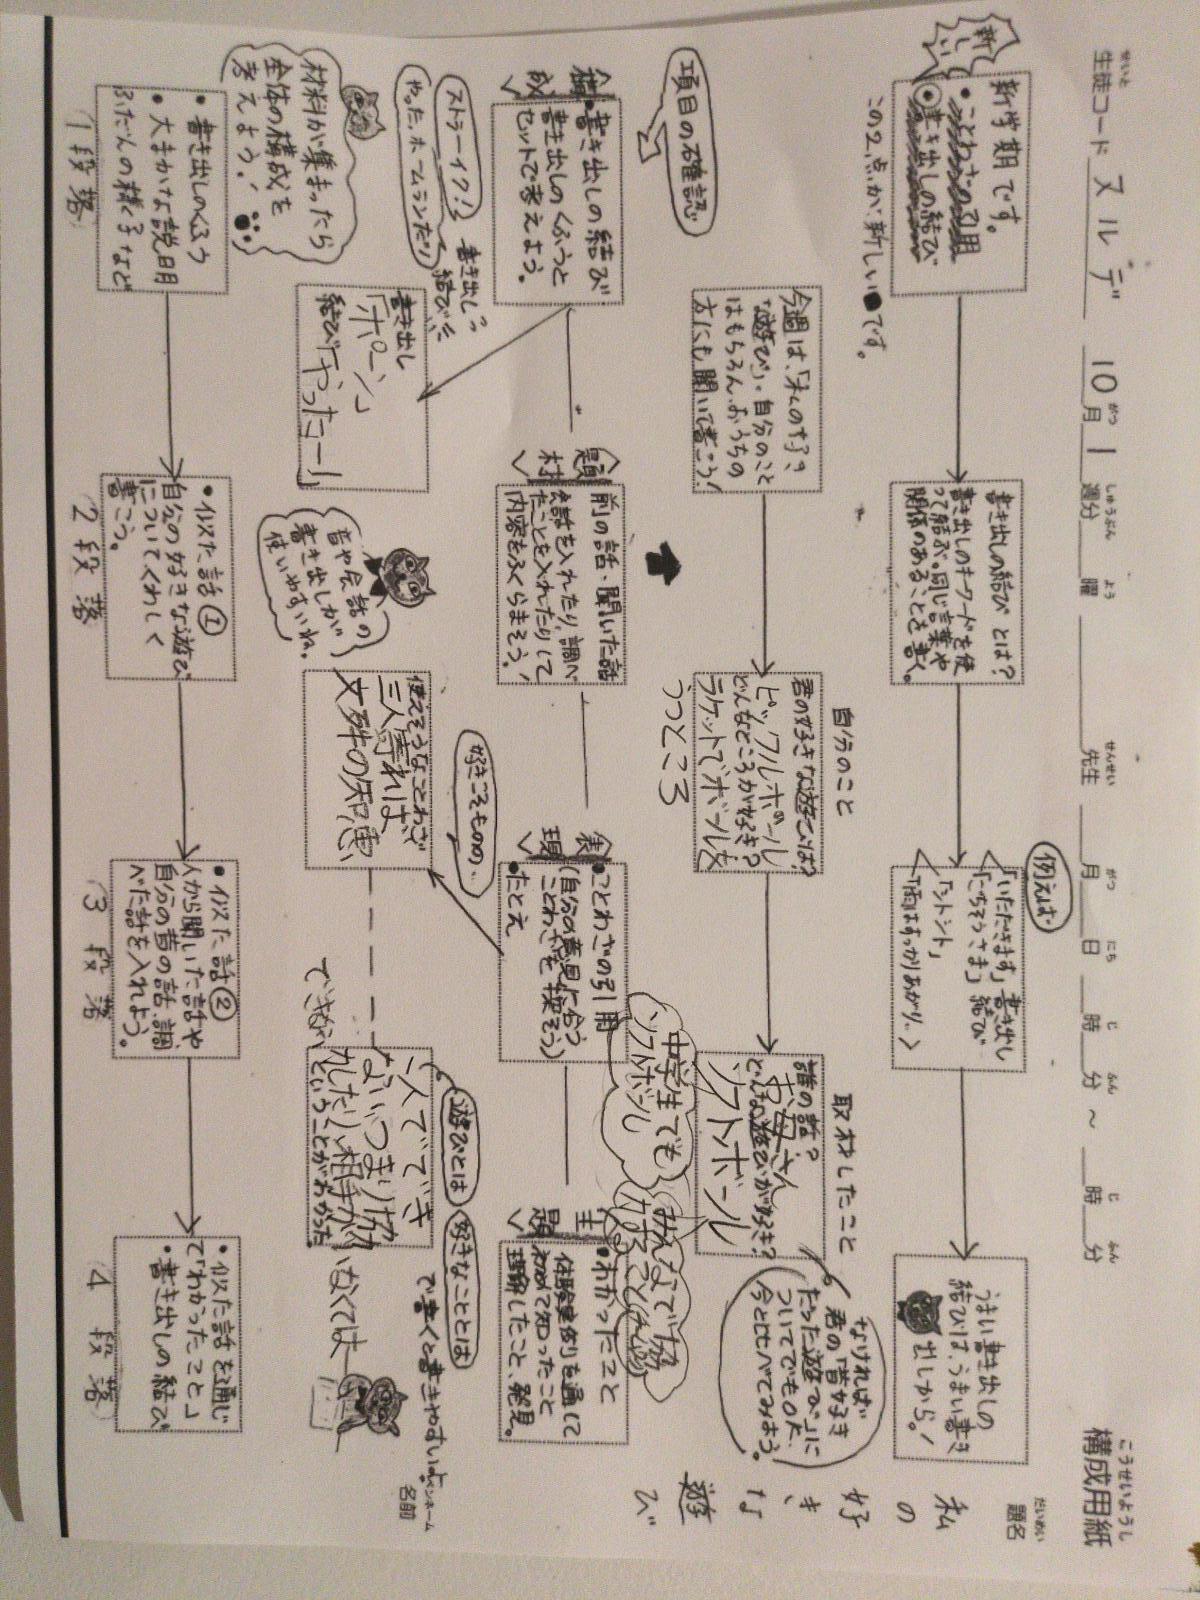 構成用紙
こうせいようし
生徒コード スルデ 10月 1 週分 曜 先生 月 日 時 分 ~ 時 分
せいと がつ しゅうぶん よう せんせい がつ にち じ ふん じ ふん
題名
だいめい
私の好きな遊び
新しい
新学期です。
・ことわざの引用
・書き出しの結び
この2点が、新しい●です。
書き出しの結びとは?
書き出しのキーワードを使
って結ぶ。同じ言葉や
関係のあることを書く。
例えば
「いただきます」書き出し
「ごちそうさま」結び
「シトシト」
「雨はすっかりあがり、
うまい書き出しの
結びは、うまい書き
出しから!
今週は、「私の好き
な遊び」。自分のこと
はもちろん、おうちの
方にも聞いて書こう!
自分のこと
君の好きな遊びは?
ピックルボール
どんなところが好き?
ラケットでボールを
うつところ
取材したこと
誰の話?
お母さん
どんな遊びが好き?
ソフトボール
なければ
君の「昔好き
だった遊び」に
ついてでもOKだよ、
今と比べてみよう。
中学生でも
ソフトボール
みんなで協
項目の確認
構成
・書き出しの結び
書き出しのくふうと
セットで考えよう。
題材
前の話・聞いた話
会話を入れたり、調べ
たことを入れたりして
内容をふくらまそう!
表現
・ことわざの引用
(自分の意見に合う
ことわざを探そう)
・たとえ
主題
・わかったこと
体験実例を通して
初めて知ったこと
理解したこと、発見。
ストラーイク!
やった、ホームランだ!
書き出し?
結び??
書き出し
「ポーン」
結び「やったー!」
好きこそものの、
使えそうなことわざ
三人寄れば
文殊の知恵
遊びとは
好きなこととは
で書くと書きやすいよ
一人でできない
つまり協
力したり相手が
なくては
できない
ということがわかった。
ペンネーム
名前
材料が集まったら
全体の構成を
考えよう!
音や会話の
書き出しが
使いやすいね。
・書き出しのくふう
・大まかな説明
ふだんの様子など
1段落
・似た話①
自分の好きな遊び
についてくわしく
書こう。
2段落
・似た話②
人から聞いた話や
自分の昔の話、調
べた話を入れよう。
3段落
・似た話を通じ
て「わかったこと」
・書き出しの結び
4段落